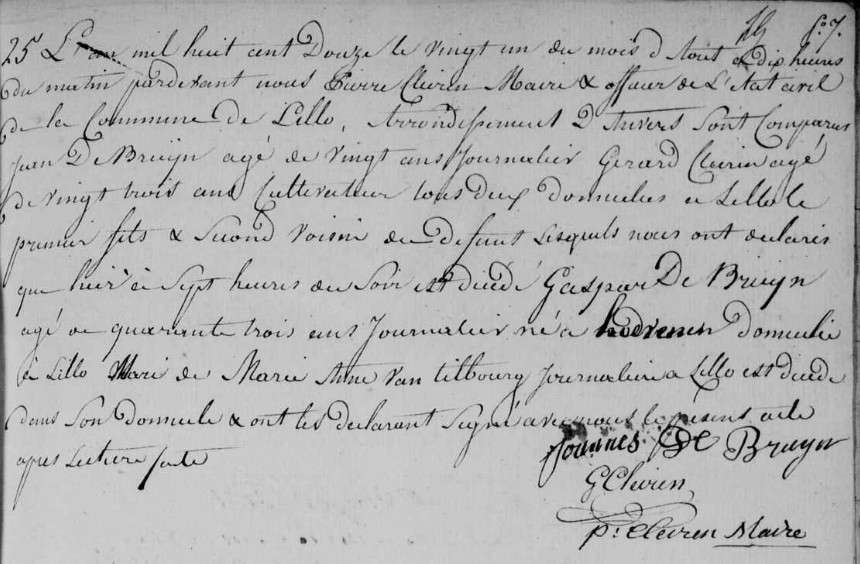 fo. 7.
25 L'an mil huit cent Douze le vingt un du mois d'Aout a dix heures
du matin pardevant nous Pierre Cleiren Maire & officier de L'etat civil
de la Commune de Lillo, Arrondissement D'Anvers Sont Comparus
Jean De Bruijn agé de vingt ans Journalier Gerard Cleiren agé
de vingt trois ans Cultivateur tous deux domicilies a Lillo le
premier fils & Second voisin du defunt Lesquels nous ont declarés
que hier à Sept heures du Soir est dicédé Gaspar De Bruijn
agé de quarante trois ans Journalier né a domicilié
à Lillo Mari de Marie Anne Van tilbourg Journaliere a Lillo est dicédé
dans Son domicile & ont les declarant Signé avec nous le présent acte
apres Lecture faite
Joannes De Bruyn
G Cleiren
P: Cleiren Maire